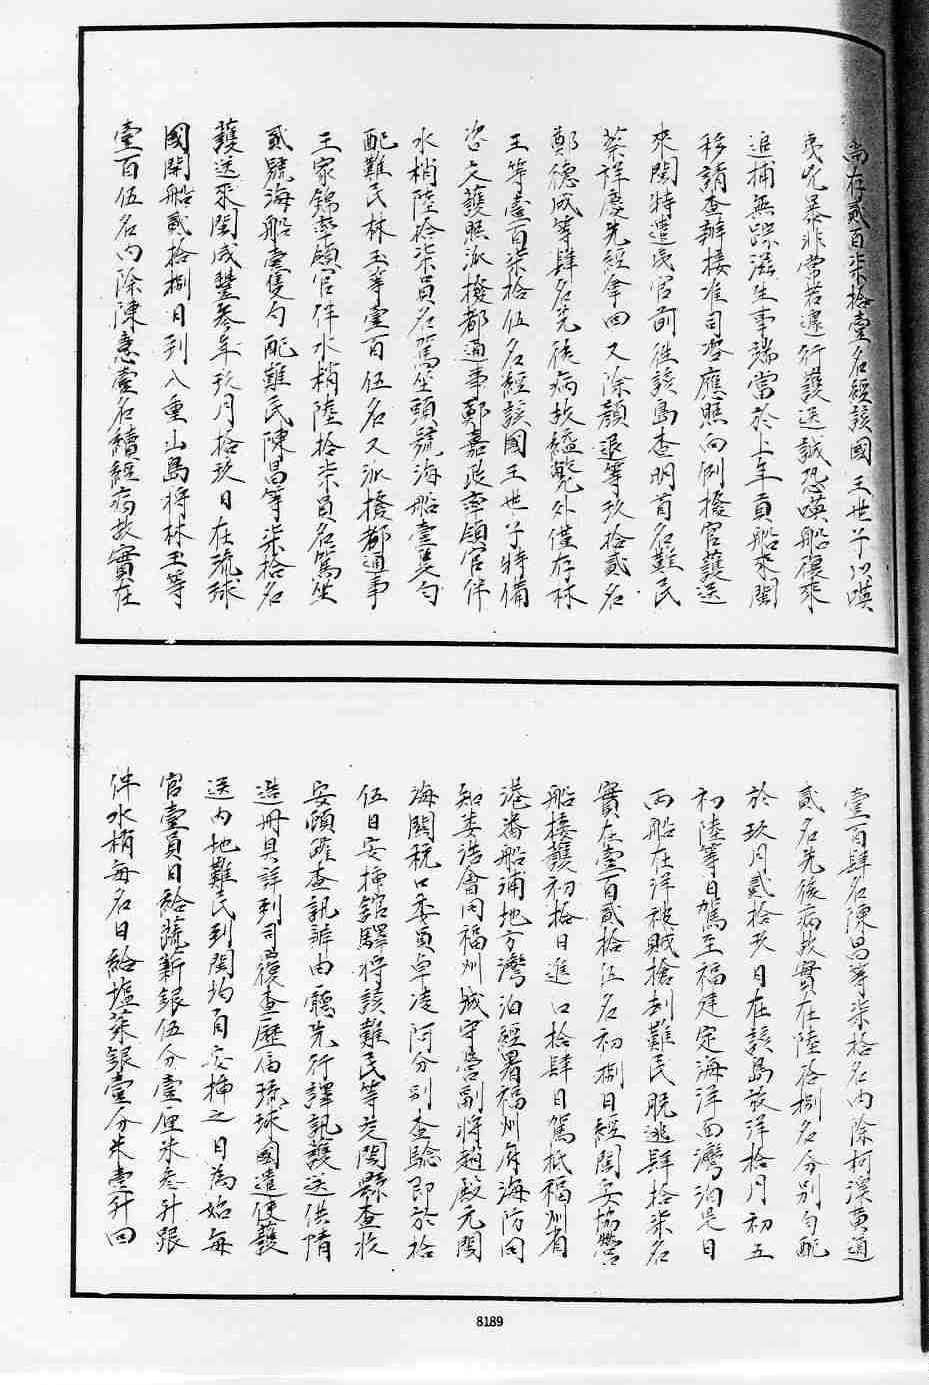 尚存貳百柒拾壹名經該國王世子以㗸
夷兇暴非常若遽行護送誠恐㗸船復來
追捕無踪滋生事端當於上年貢船來閩
移請查辦接准司咨應照向例撥官護送
來閩特遣夷官前徃該島查明首名難民
蔡祥慶先經拿回又除顏退等玖拾貳名
鄭德成等肆名先後病故縊斃外僅存林
玉等壹百柒拾伍名經該國王世子特備
咨文護照派撥都通事鄭嘉政率領官伴
水梢陸拾柒員名駕坐頭號海船壹隻勻
配難民林玉等壹百伍名又派撥都通事
王家錦率領官伴水梢陸拾柒員名駕坐
貳號海船壹隻勻配難民陳昌等柒拾名
護送來閩咸豐叁年玖月拾玖日在琉球
國開船貳拾捌日到八重山島將林玉等
壹百伍名內除陳意壹名續經病故實在
壹百肆名陳昌等柒拾名內除柯溪黃道
貳名先後病故實在陸拾捌名分別勻配
於玖月貳拾玖日在該島放洋拾月初五
初陸等日駕至福建定海洋面灣泊是日
兩船在洋被賊搶刦難民脫逃肆拾柒名
實在壹百貳拾伍名初捌日經閩安協營
船接護初拾日進口拾肆日駕抵福州省
港番船浦地方灣泊經署福州府海防同
知婁浩會同福州城守營副將趙殿元閩
海關稅口委員卓凌阿分別查驗即於拾
伍日安揷館驛將該難民等交閩縣查收
安頓確查訊辦由廳先行譯訊護送供情
造冊具詳到司覆查歷屆琉球國遣使護
送內地難民到閩均自安揷之日為始每
官壹員日給蔬薪銀伍分壹厘米叁升跟
伴水梢每名日給塩菜銀壹分米壹升回
8189